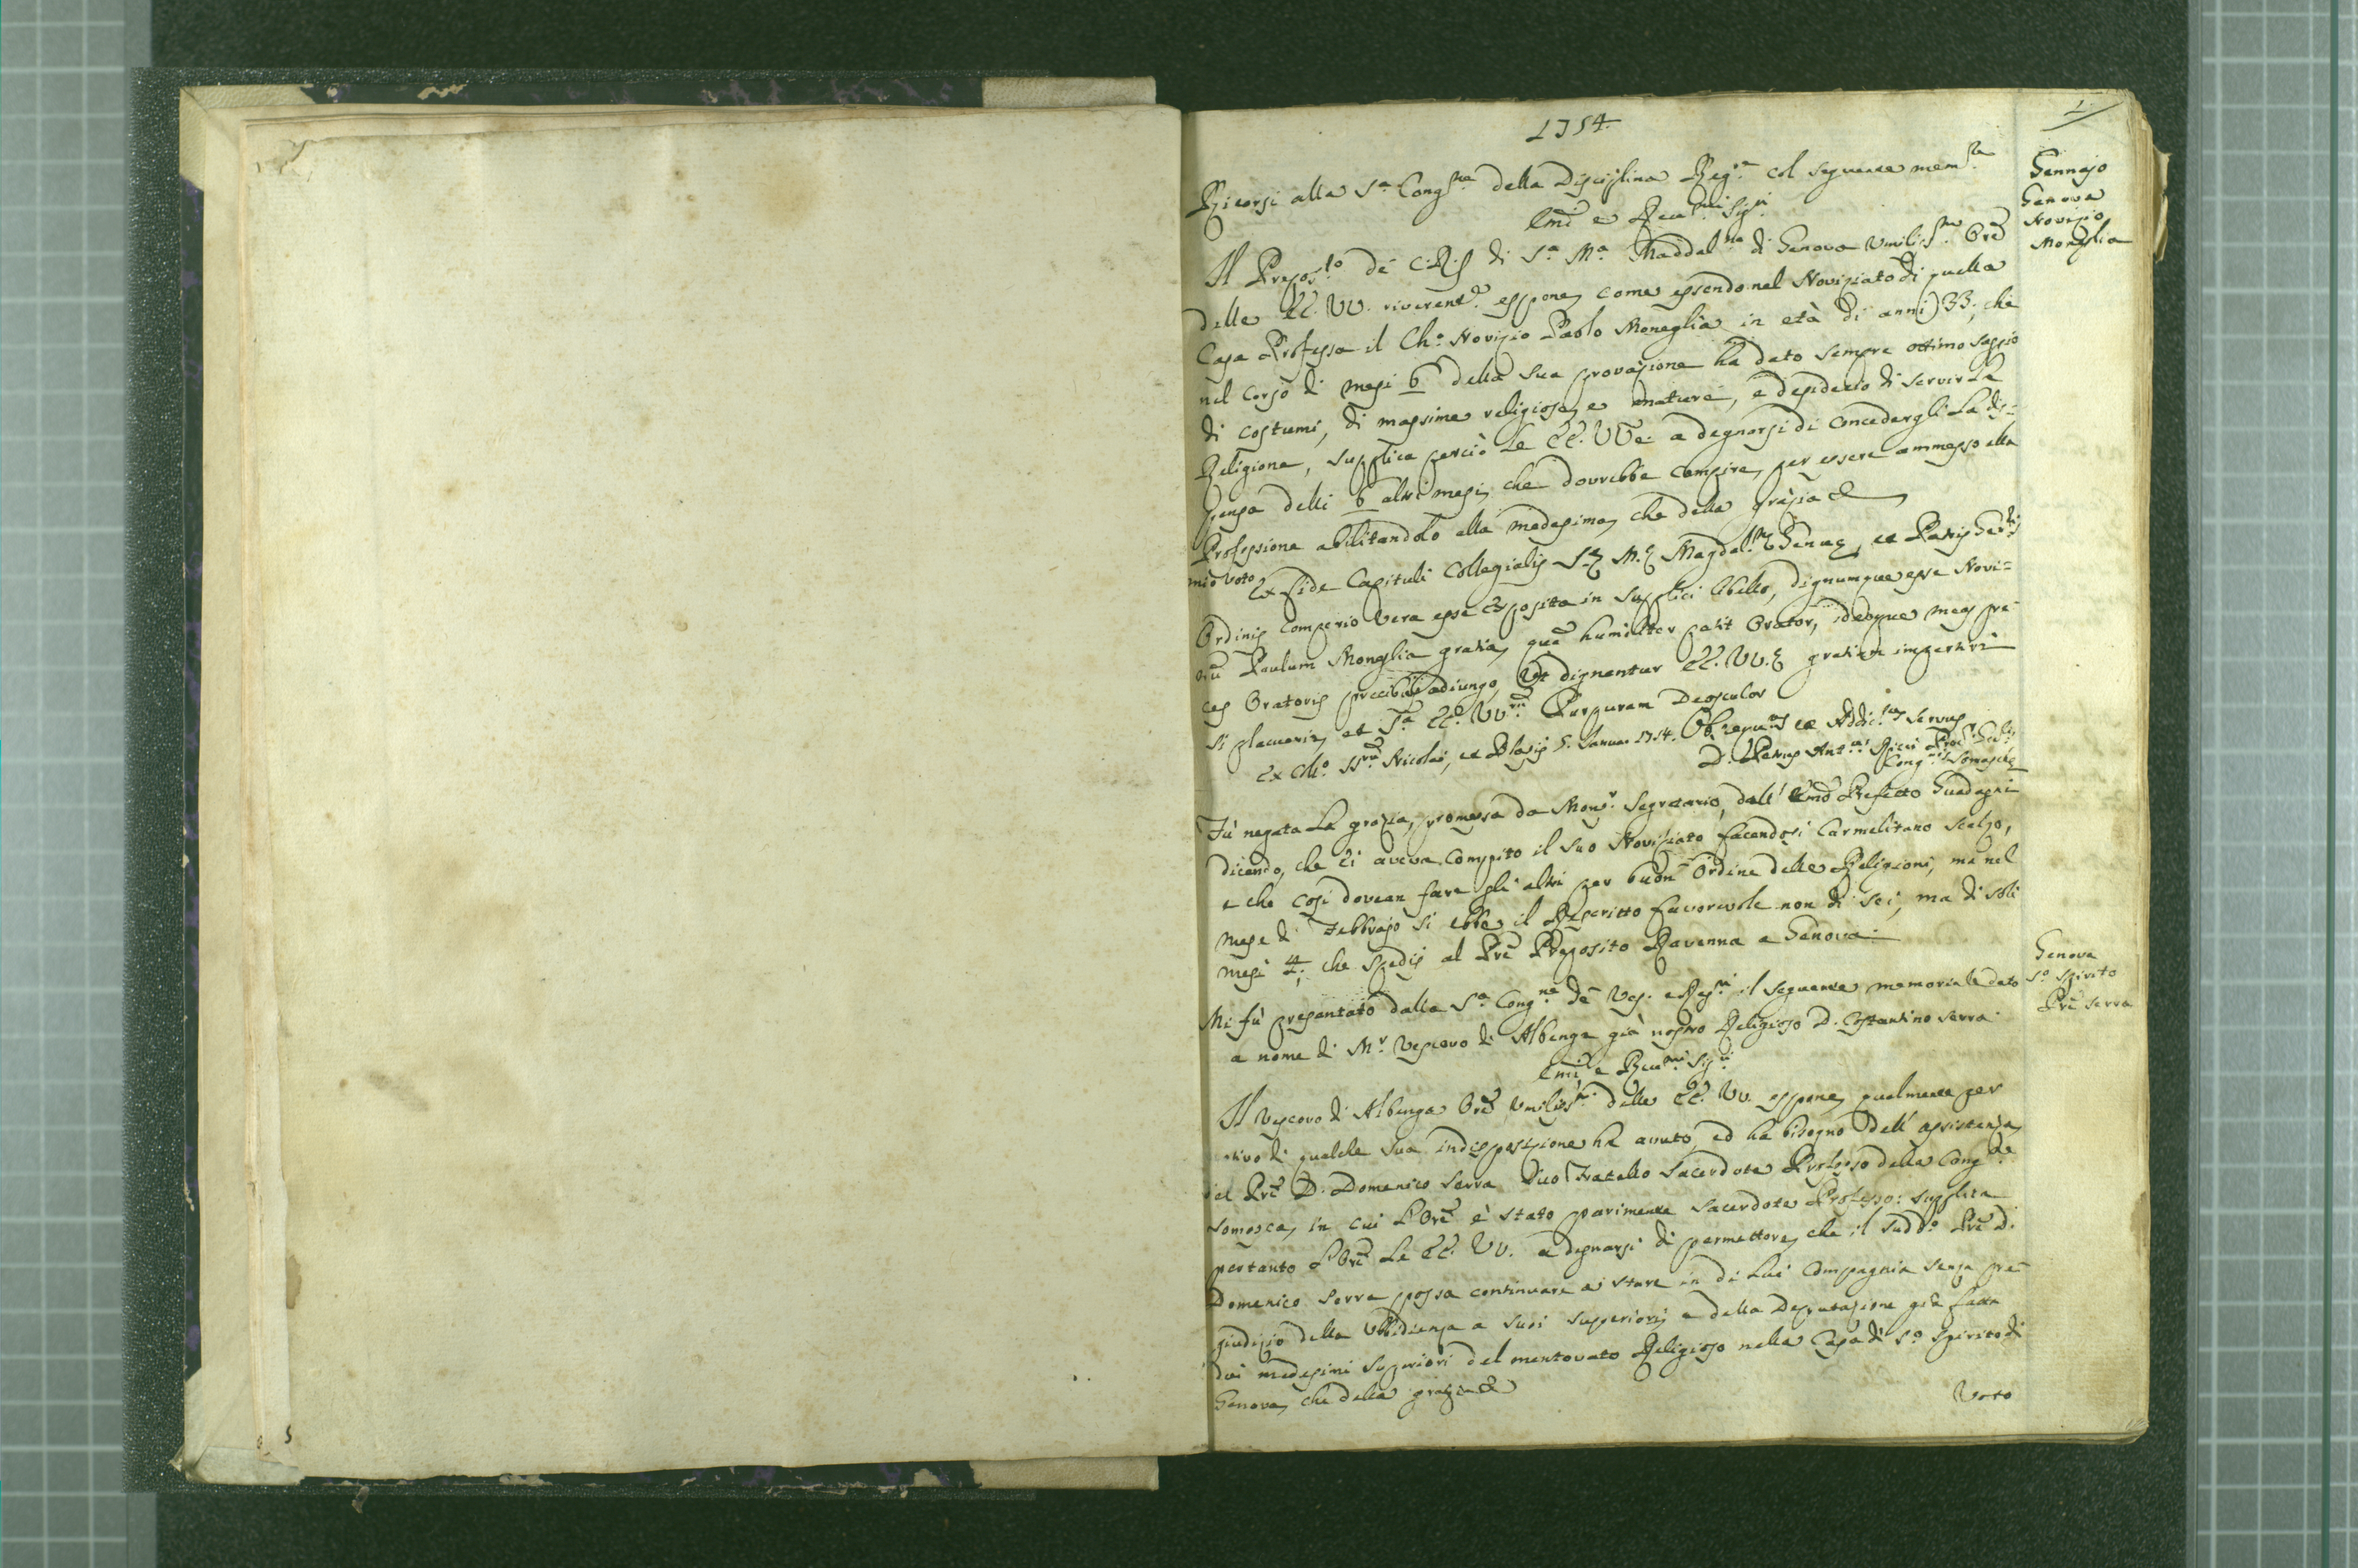 1754.
1.
Ricorsi alla S.ª Cong.ne della Disciplina Reg.re col seguente mem.le
Gennajo
Genova
Novizio
Moneglia
Emi e Rev.mi Sig.ri
Il Prepos.to de C.R.S. di S.ª M.ª Maddal.na di Genova Umiliss.mo Ore
delle EE. VV. riverent.e espone, come essendo nel Noviziato di quella
Casa Professa il Ch.o Novizio Paolo Moneglia in età di anni 33, che
nel corso di mesi 6 della sua provazione ha dato sempre ottimo saggio
di costumi, di massime religiose, e mature, e desiderio di servir La
Religione, supplica perciò Le EE. VV. a degnarsi di concedergli La dis=
pensa delli 6 altri mesi, che dovrebbe compire, per essere ammesso alla
Professione abilitandolo alla medesima, che della grazia &
mio voto
Ex fide Capituli Collegialis S.æ M.æ Magdal.næ Genuæ, et Patris Gen.lis
Ordinis comperio vera esse exposita in supplici libello, dignumque esse Novi=
um Paulum Moneglia gratia, quã humiliter petit Orator, ideoque meas pre=
ces Oratoris precibus adiungo, Ut dignentur EE. VV.æ gratiam impertiri
si placuerit, et S.ª EE. VV.rũ Purpuram Deosculor
Ex Coll.o SS.rũ Nicolai, et Blasij 5. Januar. 1754. Obsequ.mus et Addic.mus servus
D. Petrus Ant.us Ricci Proc.r Gen.lis
Cong.nis Somaschæ
Fù negata La grazia, promessa da Mons.r Segretario, dall' Emõ Prefetto Guadagni
dicendo, che Ei aveva compito il suo Noviziato facendosi Carmelitano scalzo,
e che così dovean fare gli altri per buon Ordine delle Religioni, ma nel
mese di Febbrajo si ebbe il Rescritto favorevole non di sei, ma di soli
mesi 4; che spedij al Prẽ Preposito Ravenna a Genova.
Genova
S.o Spirito
Prẽ Serra
Mi fù presentato dalla S.ª Cong.ne de Ves. e Reg.ri il seguente memoriale dato
a nome di M.r Vescovo di Albenga già nostro Religioso D. Costantino Serra.
Emi e Rev.mi Sig.ri
Il Vescovo di Albenga Orẽ Umiliss.mo delle EE. VV. espone, qualmente per
motivo di qualche sua indisposizione ha avuto, ed ha bisogno dell' assistenza
del Prẽ D. Domenico Serra suo Fratello Sacerdote Professo della Cong.ne
Somasca, in cui L'Orẽ è stato parimente Sacerdote Professo: supplica
pertanto L'Orẽ Le EE. VV. a degnarsi di permettere, che il sudd.o Prẽ D.
Domenico Serra possa continuare a stare in di Lui Compagnia senza pre=
giudizio della Ubbidienza a suoi superiori, e della Deputazione già fatta
dai medesimi superiori del mentovato Religioso nella Casa di S.o Spirito di
Genova, che della grazia &
Voto